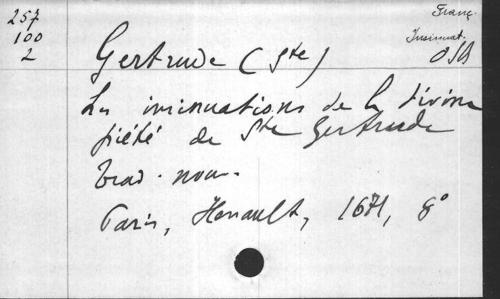 257
100
2
Franç.
Insinuat.
OSB
Gertrude (Ste)
Les insinuations de la divine
piété de Ste Gertrude
trad. nouv.
Paris, Henault, 1671, 8°